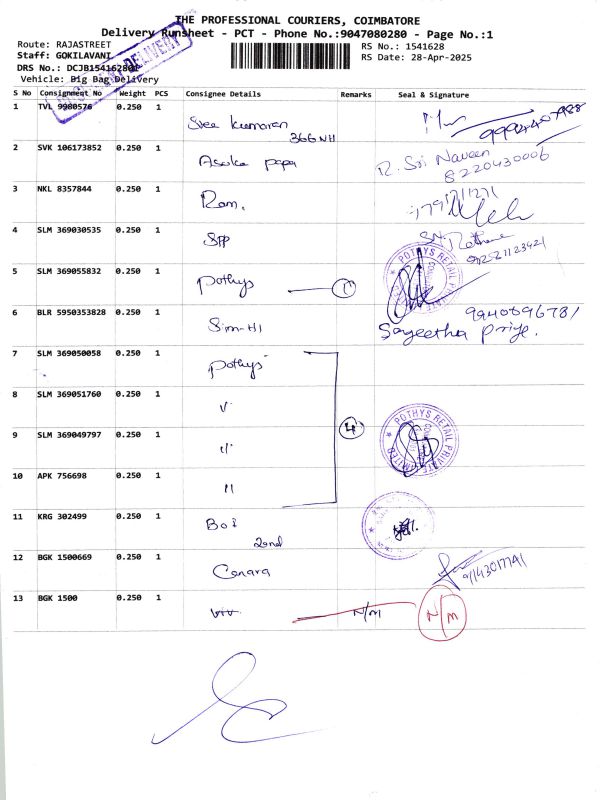 THE PROFESSIONAL COURIERS, COIMBATORE
Delivery Runsheet - PCT - Phone No.:9047080280 - Page No.:1
Route: RAJASTREET
Staff: GOKILAVANI
DRS No.: DCJB1541628
Vehicle: Big Bag Delivery
DELIVERY
RS No.: 1541628
RS Date: 28-Apr-2025
S No Consignment No Weight PCS Consignee Details Remarks Seal & Signature
1 TVL 9980576 0.250 1 Sree kumaran 366 NH 9994407988
2 SVK 106173852 0.250 1 Asoka papa R. Sri Naveen 8220430006
3 NKL 8357844 0.250 1 Ram.
4 SLM 369030535 0.250 1 SPP
5 SLM 369055832 0.250 1 Pothys 1 POTHYS RETAIL PRIVATE LIMITED
6 BLR 5950353828 0.250 1 Sim-HI Sageetha Priye.
7 SLM 369050058 0.250 1 Pothys
8 SLM 369051760 0.250 1 "
9 SLM 369049797 0.250 1 " 4 POTHYS RETAIL PRIVATE LIMITED
10 APK 756698 0.250 1 "
11 KRG 302499 0.250 1 BoI 2nd
12 BGK 1500669 0.250 1 Canara
13 BGK 1500 0.250 1 N/M N/M